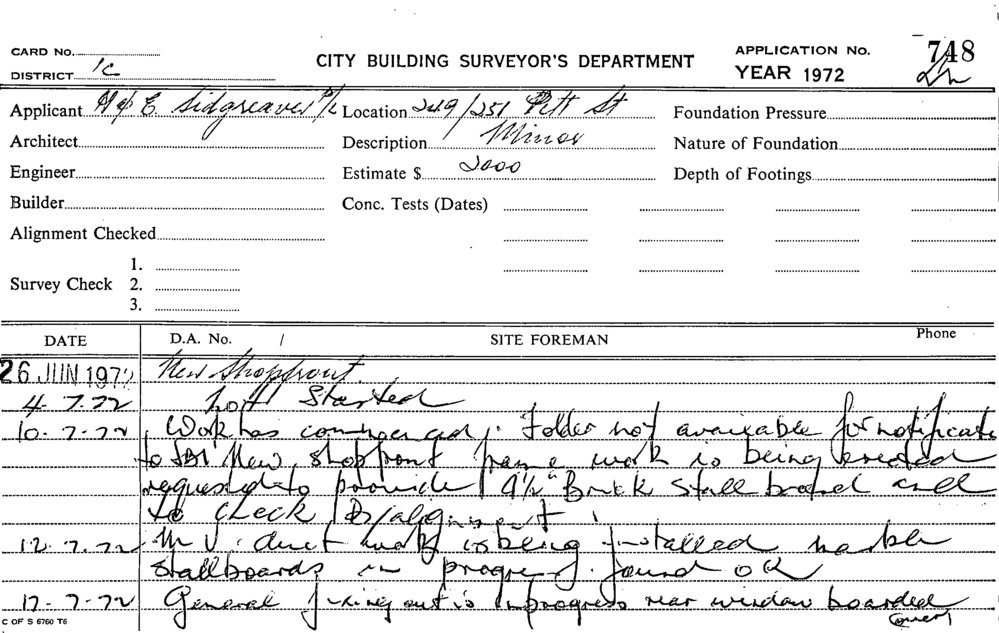 CARD No.
DISTRICT 1C
CITY BUILDING SURVEYOR'S DEPARTMENT
APPLICATION No. 748
YEAR 1972
Applicant H & E Sidgreaves P/L Location 249/251 Pitt St Foundation Pressure
Architect Description Minor Nature of Foundation
Engineer Estimate $ 2000 Depth of Footings
Builder Conc. Tests (Dates)
Alignment Checked
1.
Survey Check 2.
3.
DATE D.A. No. / SITE FOREMAN Phone
26 JUN 1972 New Shopfront.
4-7.72 not Started
10-7-72 Work has commenced. Folder not available for notificate
to New shopfront frame work is being erected
requested to provide 9½" Brick stall board and
to check B/alignment
12.7.72 M.V. duct work is being installed marble
stallboards in progress. found OK
17-7-72 General fixing out is in progress rear window boarded
C OF S 6760 T6 (over)